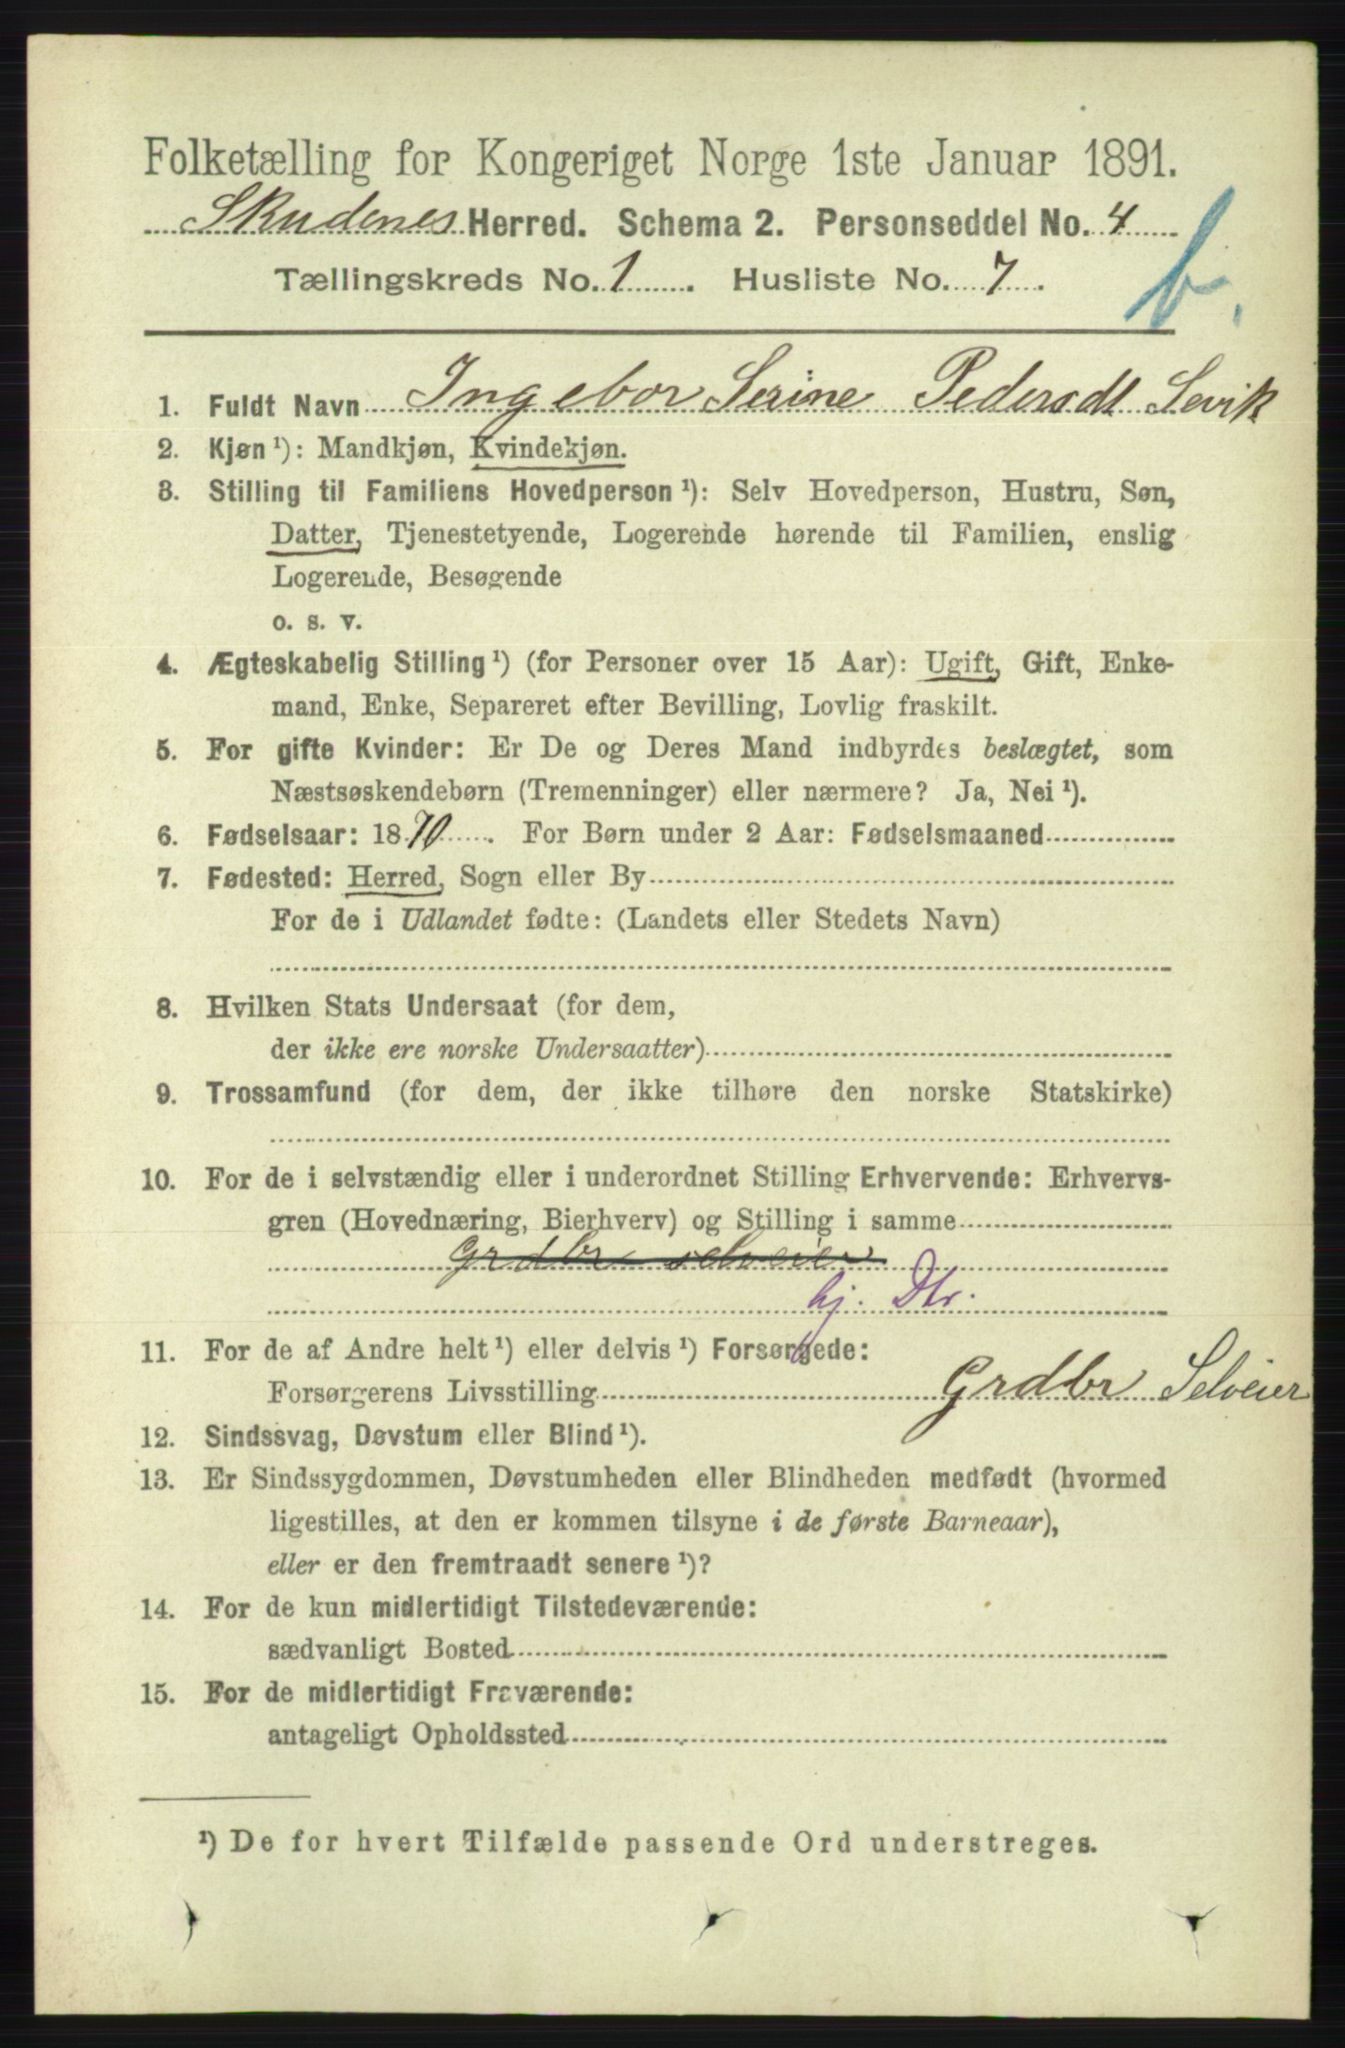 Folketælling for Kongeriget Norge 1ste Januar 1891.
Skudenes Herred. Schema 2. Personseddel No. 4
Tællingskreds No. 1. Husliste No. 7.
b.
1. Fuldt Navn Ingebor Serine Pedersdt Sevik
2. Kjøn ¹): Mandkjøn, Kvindekjøn.
3. Stilling til Familiens Hovedperson ¹): Selv Hovedperson, Hustru, Søn,
Datter, Tjenestetyende, Logerende hørende til Familien, enslig
Logerende, Besøgende
o. s. v.
4. Ægteskabelig Stilling ¹) (for Personer over 15 Aar): Ugift, Gift, Enke-
mand, Enke, Separeret efter Bevilling, Lovlig fraskilt.
5. For gifte Kvinder: Er De og Deres Mand indbyrdes beslægtet, som
Næstsøskendebørn (Tremenninger) eller nærmere? Ja, Nei ¹).
6. Fødselsaar: 1870. For Børn under 2 Aar: Fødselsmaaned
7. Fødested: Herred, Sogn eller By
For de i Udlandet fødte: (Landets eller Stedets Navn)
8. Hvilken Stats Undersaat (for dem,
der ikke ere norske Undersaatter)
9. Trossamfund (for dem, der ikke tilhøre den norske Statskirke)
10. For de i selvstændig eller i underordnet Stilling Erhvervende: Erhvervs-
gren (Hovednæring, Bierhverv) og Stilling i samme
Grdbr selveier
hj. Dtr.
11. For de af Andre helt ¹) eller delvis ¹) Forsørgede:
Forsørgerens Livsstilling Grdbr Selveier
12. Sindssvag, Døvstum eller Blind ¹).
13. Er Sindssygdommen, Døvstumheden eller Blindheden medfødt (hvormed
ligestilles, at den er kommen tilsyne i de første Barneaar),
eller er den fremtraadt senere ¹)?
14. For de kun midlertidigt Tilstedeværende:
sædvanligt Bosted
15. For de midlertidigt Fraværende:
antageligt Opholdssted
¹) De for hvert Tilfælde passende Ord understreges.